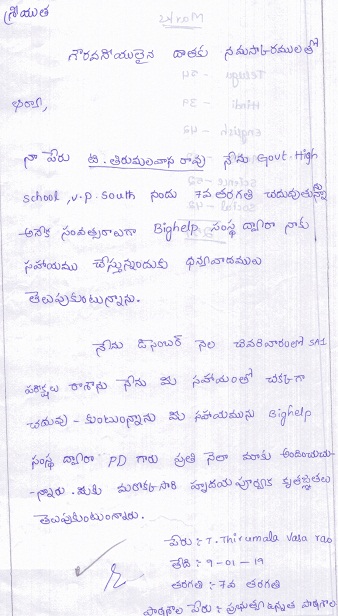 శ్రీయుత
గౌరవనీయులైన దాతకు నమస్కారములతో
నా పేరు టి. తిరుమలవాస రావు నేను Govt. High
school, v.p. South నందు 7వ తరగతి చదువుతున్నా
అనేక సంవత్సరాలుగా Bighelp సంస్థ ద్వారా నాకు
సహాయము చేస్తున్నందుకు ధన్యవాదములు
తెలుపుకుంటున్నాను.
నేను డిసెంబర్ నెల చివరివారంలో SA1
పరీక్షలు రాశాను నేను మీ సహాయంతో చక్కగా
చదువు-కుంటున్నాను మీ సహాయమును Bighelp
సంస్థ ద్వారా PD గారు ప్రతి నెలా మాకు అందించుచు
-న్నారు. మరొకసారి హృదయపూర్వక కృతజ్ఞతలు
తెలుపుకుంటున్నారు.
పేరు :- T. Thirumala Vasa rao
తేది :- 9-01-19
తరగతి :- 7వ తరగతి
పాఠశాల పేరు :- ప్రభుత్వ ఉన్నత పాఠశాల